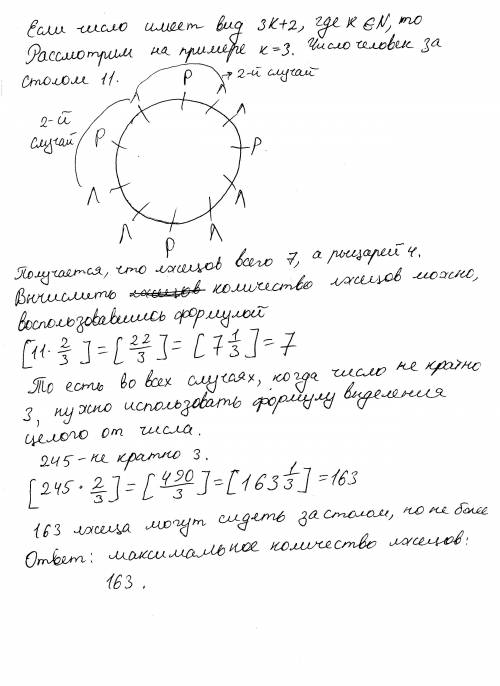 Если число имеет вид 3к+2, где к ∈ N, то
Рассмотрим на примере к=3. Число человек за
столом 11.
→ 2-й случай
Л Р Л
2-й
случай
Р Л
Р
Л Л
Л Р Л
Получается, что лжецов всего 7, а рыцарей 4.
Вычислить количество лжецов можно,
воспользовавшись формулой
[11 · 2/3] = [22/3] = [7 1/3] = 7
То есть во всех случаях, когда число не кратно
3, нужно использовать формулу выделения
целого от числа.
245 - не кратно 3.
[245 · 2/3] = [490/3] = [163 1/3] = 163
163 лжеца могут сидеть за столом, но не более
Ответ: максимальное количество лжецов:
163.